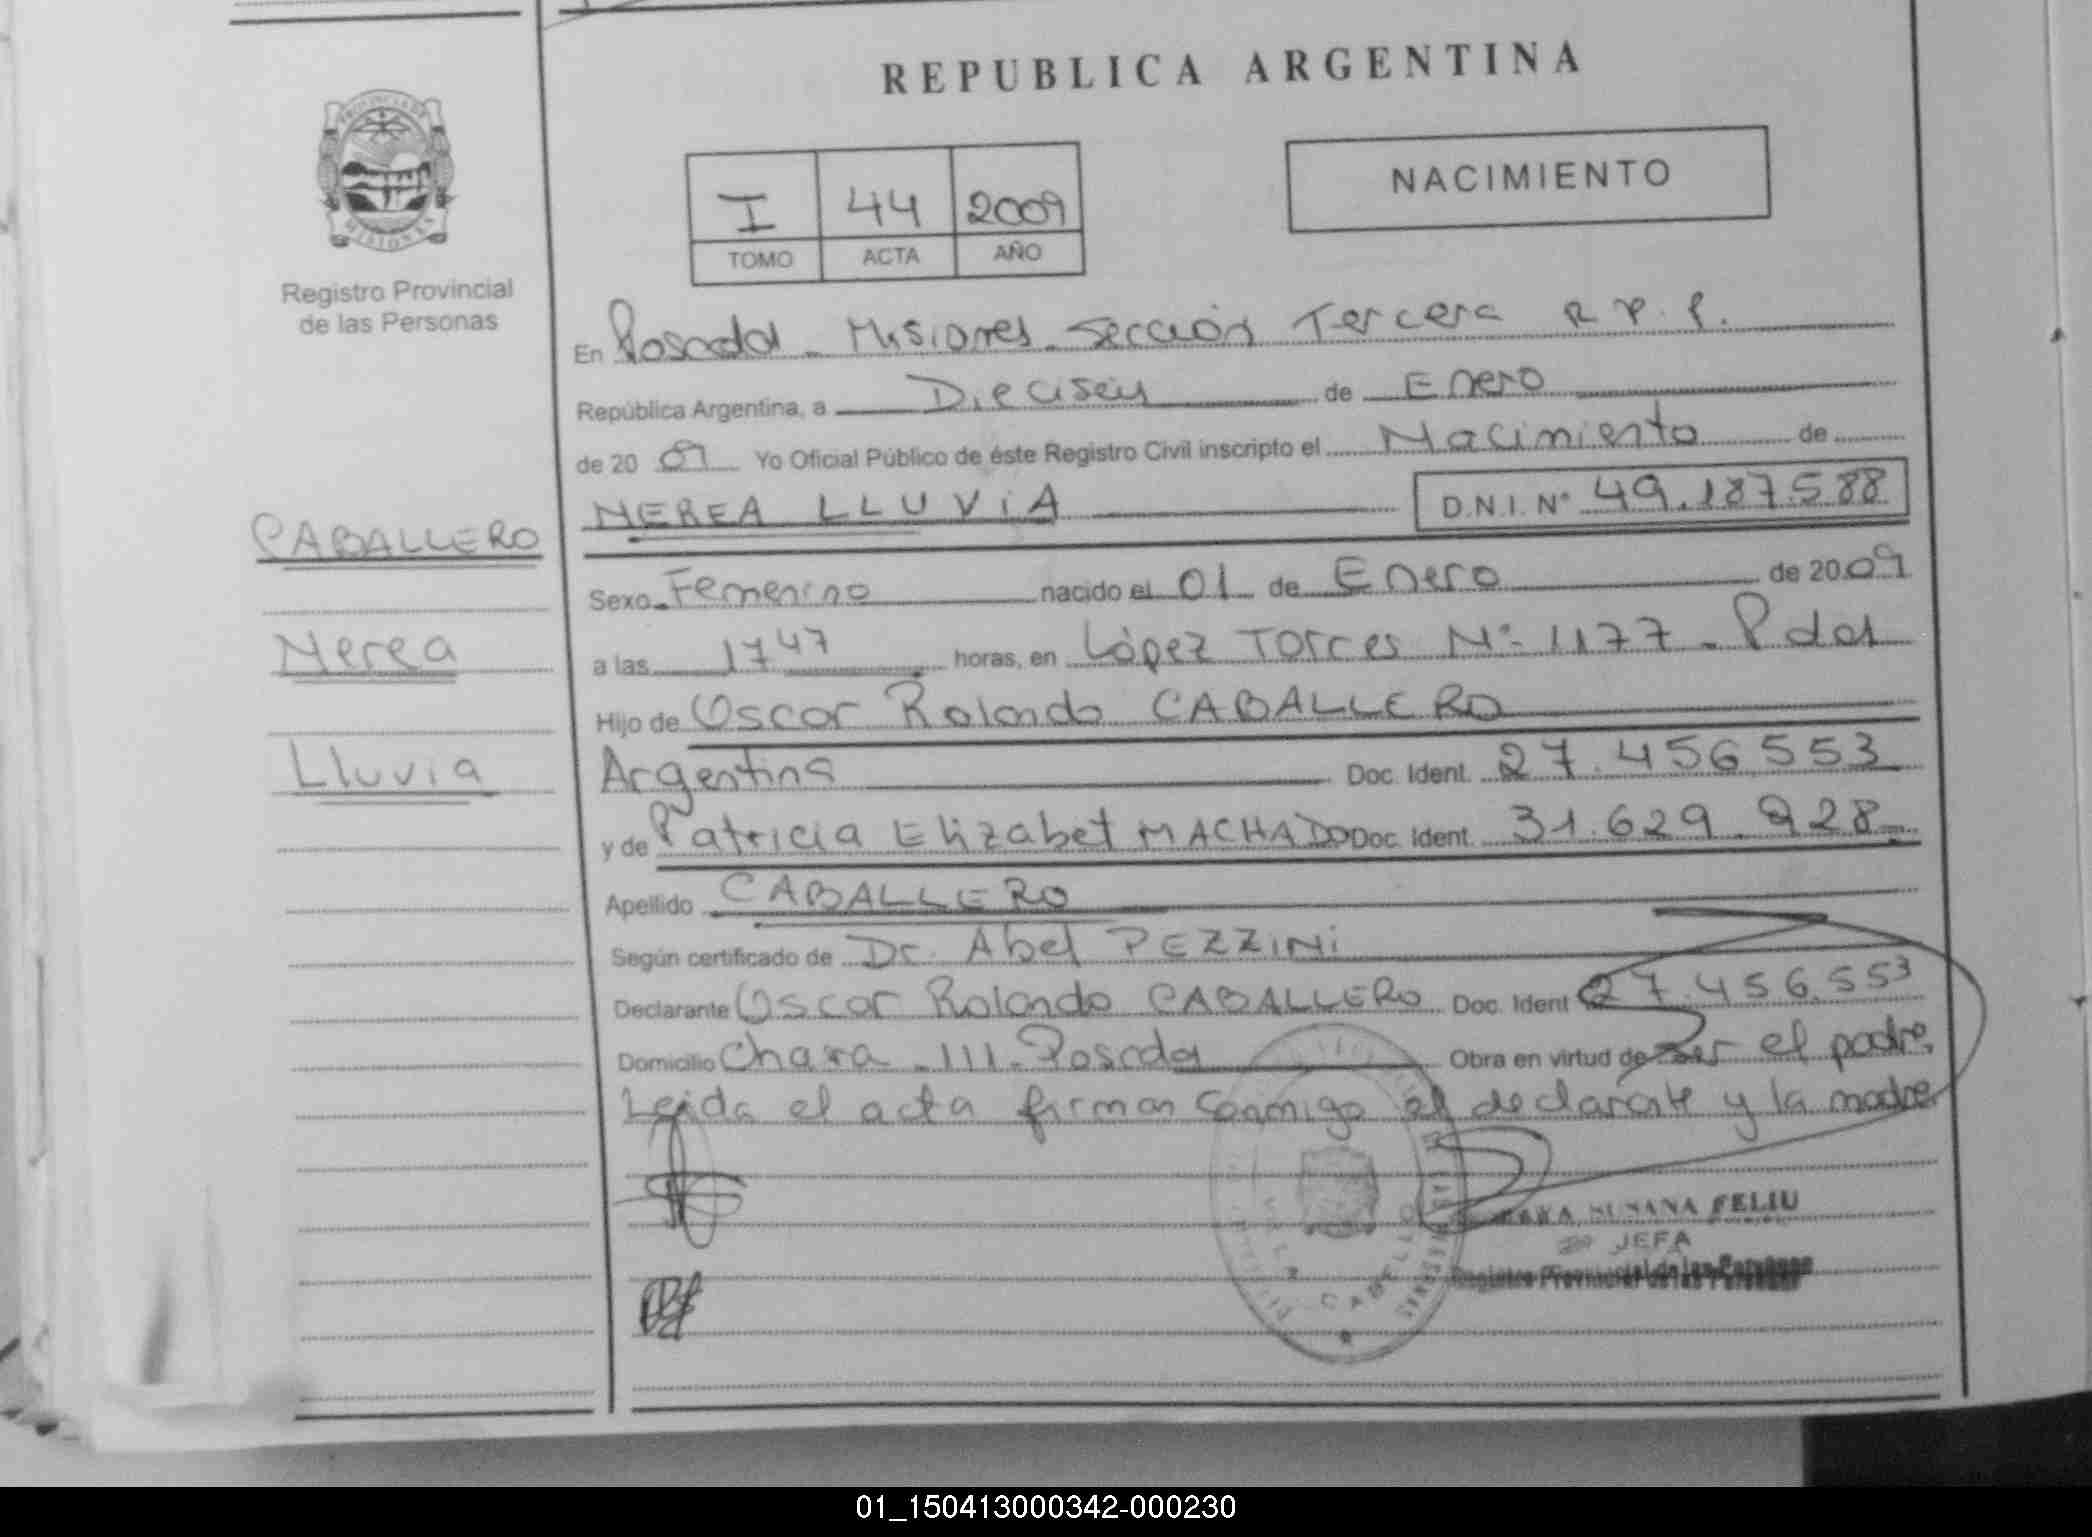 REPUBLICA ARGENTINA
PROVINCIA DE
MISIONES
Registro Provincial
de las Personas
NACIMIENTO
I 44 2009
TOMO ACTA AÑO
En Posadas - Misiones - Sección Tercera R.P.P.
República Argentina, a Dieciseis de Enero
de 20 09 Yo Oficial Público de éste Registro Civil inscripto el Nacimiento de
NEREA LLUVIA D.N.I. N° 49.187.588
CABALLERO
Nerea
Lluvia
Sexo Femenino nacido el 01 de Enero de 20 09
a las 17 47 horas, en López Torres N° 1177 - Pdas
Hijo de Oscar Rolando CABALLERO
Argentina Doc. Ident. 27.456.553
y de Patricia Elizabet MACHADO Doc. Ident. 31.629.928
Apellido CABALLERO
Según certificado de Dr. Abel PEZZINI
Declarante Oscar Rolando CABALLERO Doc. Ident 27.456.553
Domicilio III - Posadas Obra en virtud de ser el padre
Leida el acta firman conmigo el declarante y la madre
SUSANA FELIU
JEFA
Registro Provincial de las Personas
01_150413000342-000230